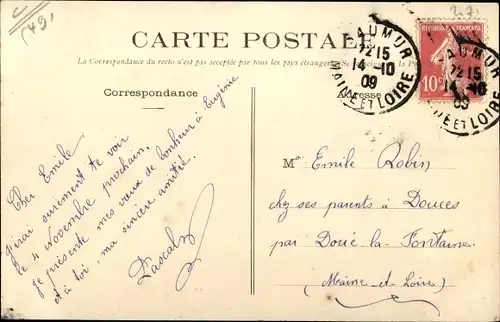 (49)
CARTE POSTALE
La Correspondance du recto n'est pas acceptée par tous les pays étrangers (Se renseigner à la Po
Correspondance
Adresse
SAUMUR
12 15
14 - 10
09
MAINE ET LOIRE
10c
SAUMUR
12 15
14 - 10
09
MAINE ET LOIRE
Cher Emile
J'irai surement te voir
le 4 Novembre prochain,
je présente mes vœux de bonheur à Eugénie
et à toi, ma sincère amitié.
Pascal
Mr Emile Robin
chez ses parents à Douces
par Doué-la-Fontaine
(Maine-et-Loire)